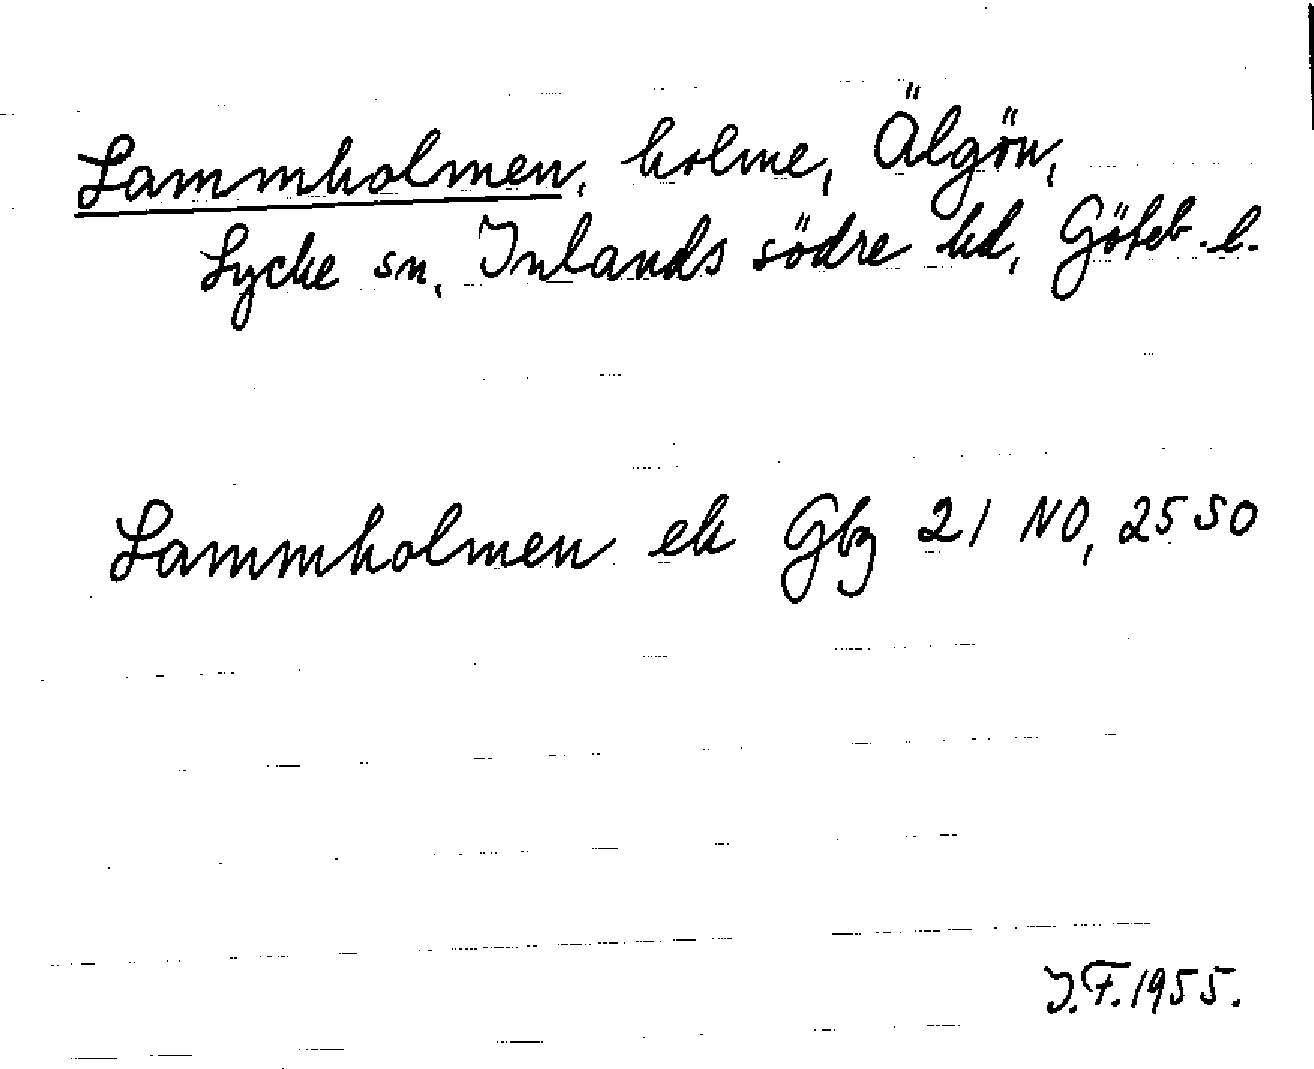 Lammholmen, holme, Älgön,
Lycke sn, Inlands södre hd, Göteb. l.
Lammholmen ek Gbg 21 NO, 25 SO
J.F. 1955.